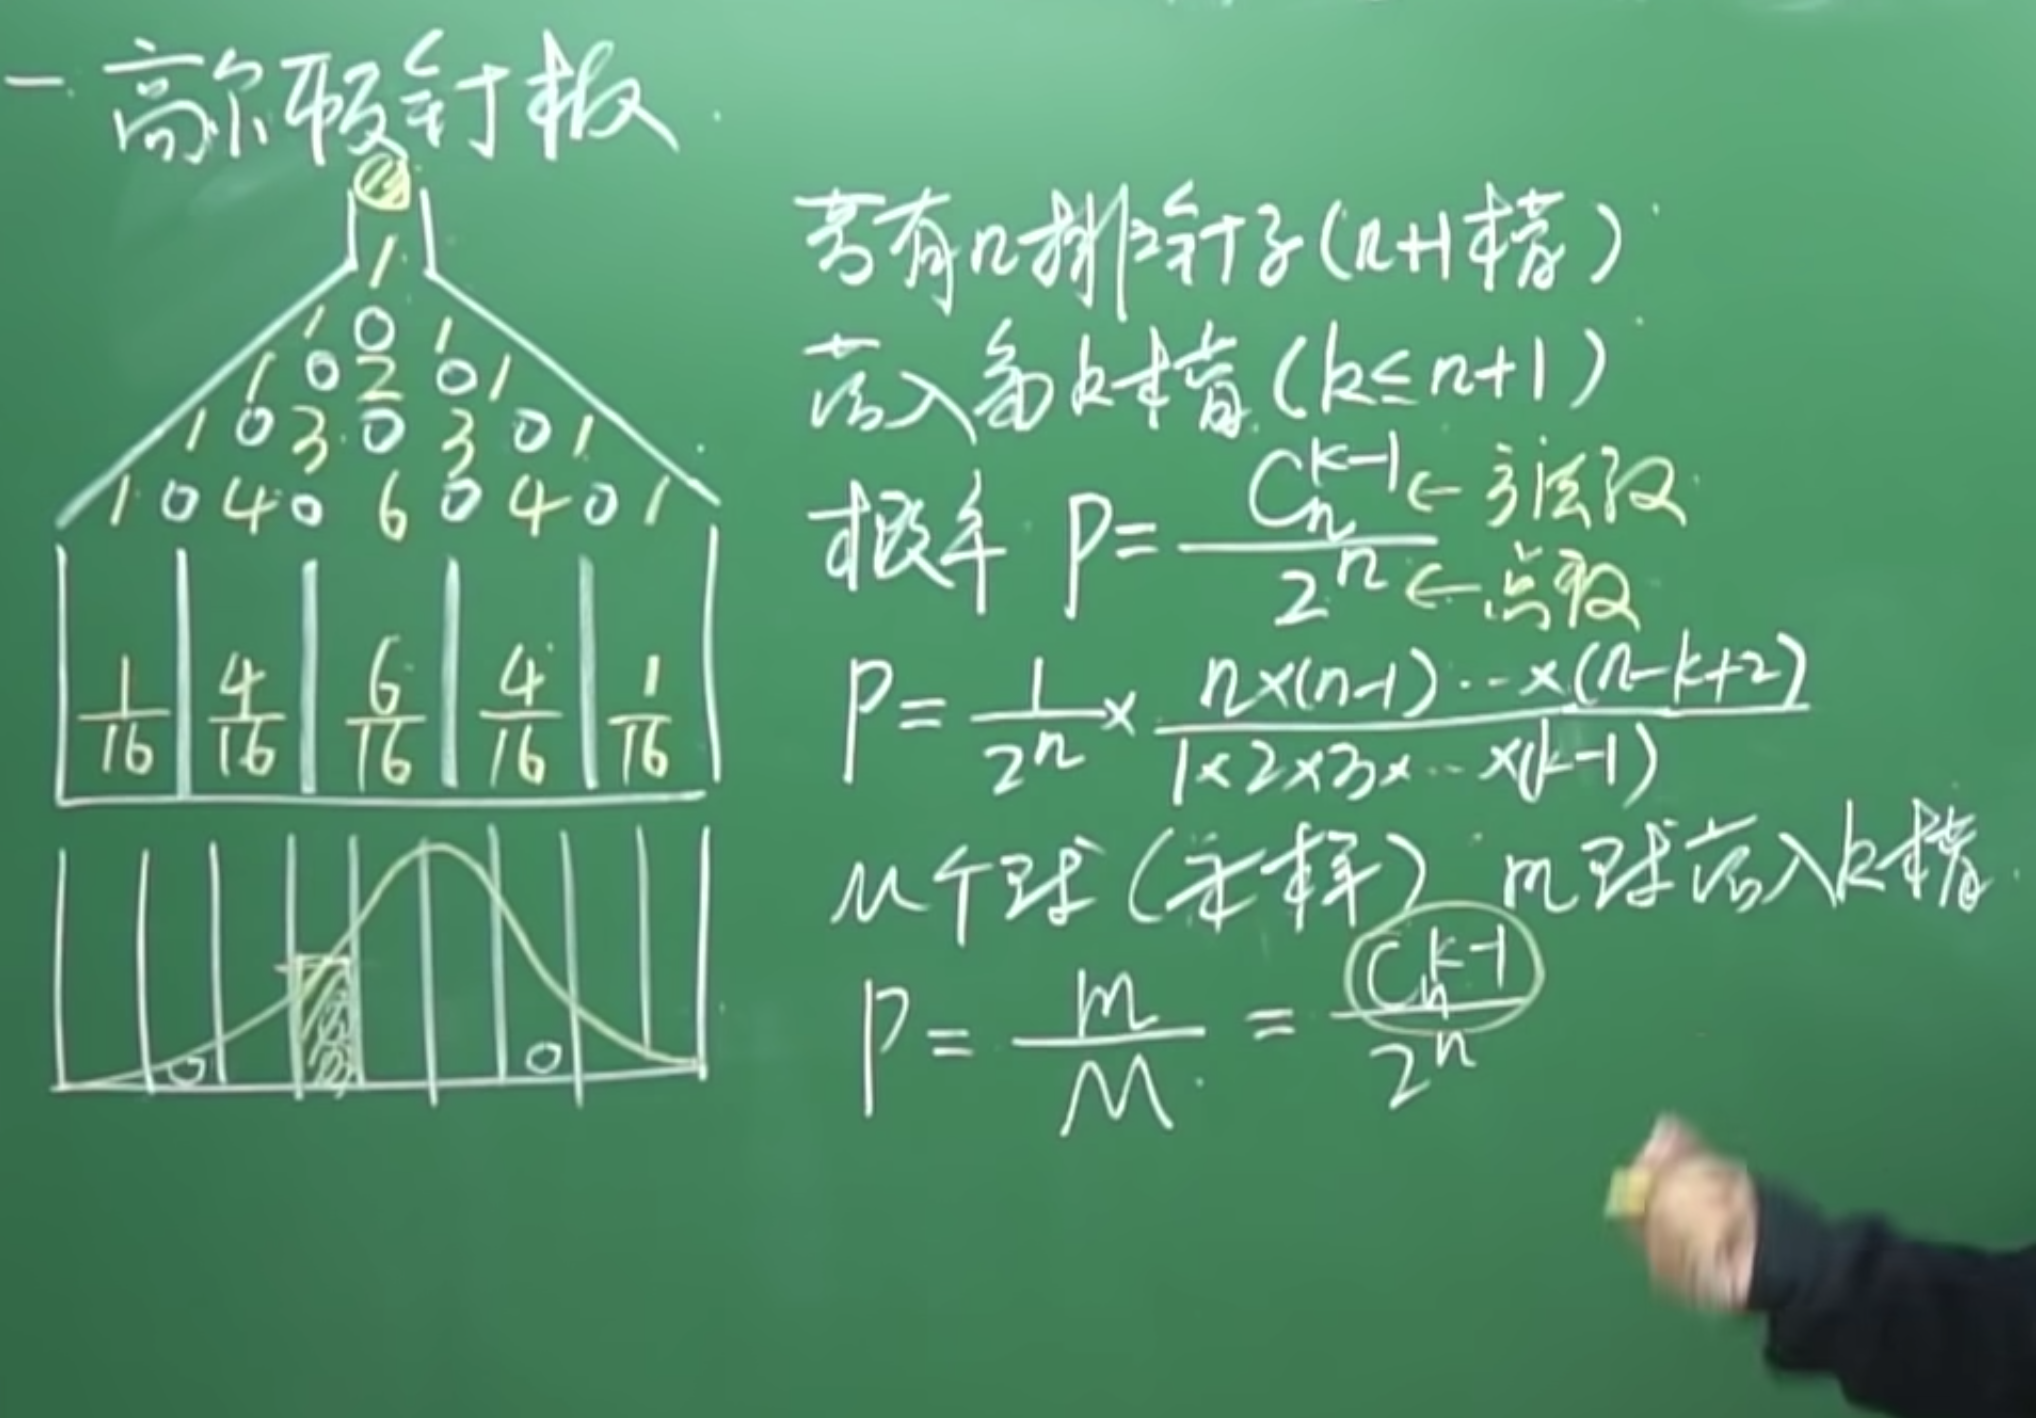 一.高尔顿钉板.
1
1 0 1
1 0 2 0 1
1 0 3 0 3 0 1
1 0 4 0 6 0 4 0 1
1/16 4/16 6/16 4/16 1/16
若有n排钉子(n+1槽)
落入第k槽(k≤n+1)
概率 P=C_n^{k-1}/2^n ←方法数 ←总数
P=1/2^n×n×(n-1)…×(n-k+2)/1×2×3×…×(k-1)
M个球(采样) m球落入k槽.
P=m/M=C_n^{k-1}/2^n